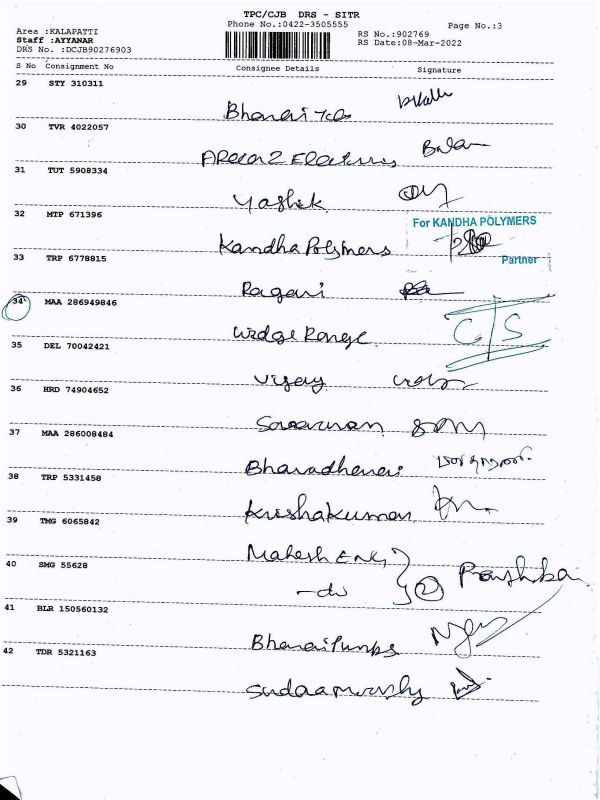 TPC/CJB DRS - SITR
Phone No.:0422-3505555
Page No.:3
Area :KALAPATTI
Staff :AYYANAR
DRS No. :DCJB90276903
RS No.:902769
RS Date:08-Mar-2022
S No Consignment No Consignee Details Signature
29 STY 310311
Bharai
30 TVR 4022057
31 TUT 5908334
Yashik
32 MTP 671396
For KANDHA POLYMERS
Kandha Polymers
Partner
33 TRP 6778815
Ragavi
34 MAA 286949846
CTS
Wedge Range
35 DEL 70042421
Vijay
36 HRD 74904652
Saravanan
37 MAA 286008484
Bharadheneri
38 TRP 5331458
Krishakumar
39 TMG 6065842
Mahesh Eng
40 SMG 55628
-do 2
41 BLR 150560132
Bharai Pumps
42 TDR 5321163